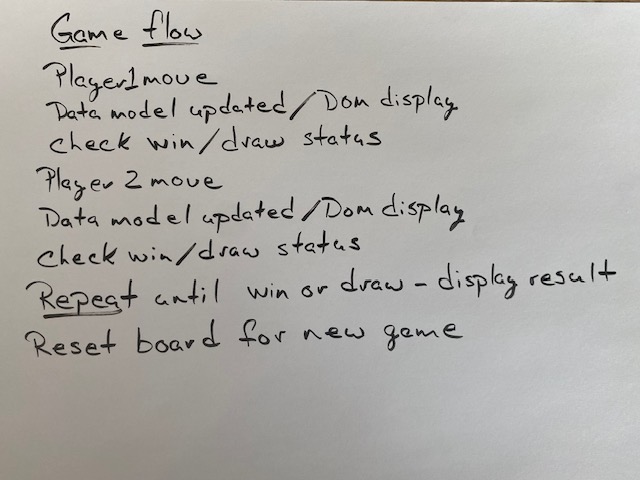 Game flow
Player1move
Data model updated/Dom display
check win/draw status
Player 2 move
Data model updated/Dom display
check win/draw status
Repeat until win or draw - display result
Reset board for new game